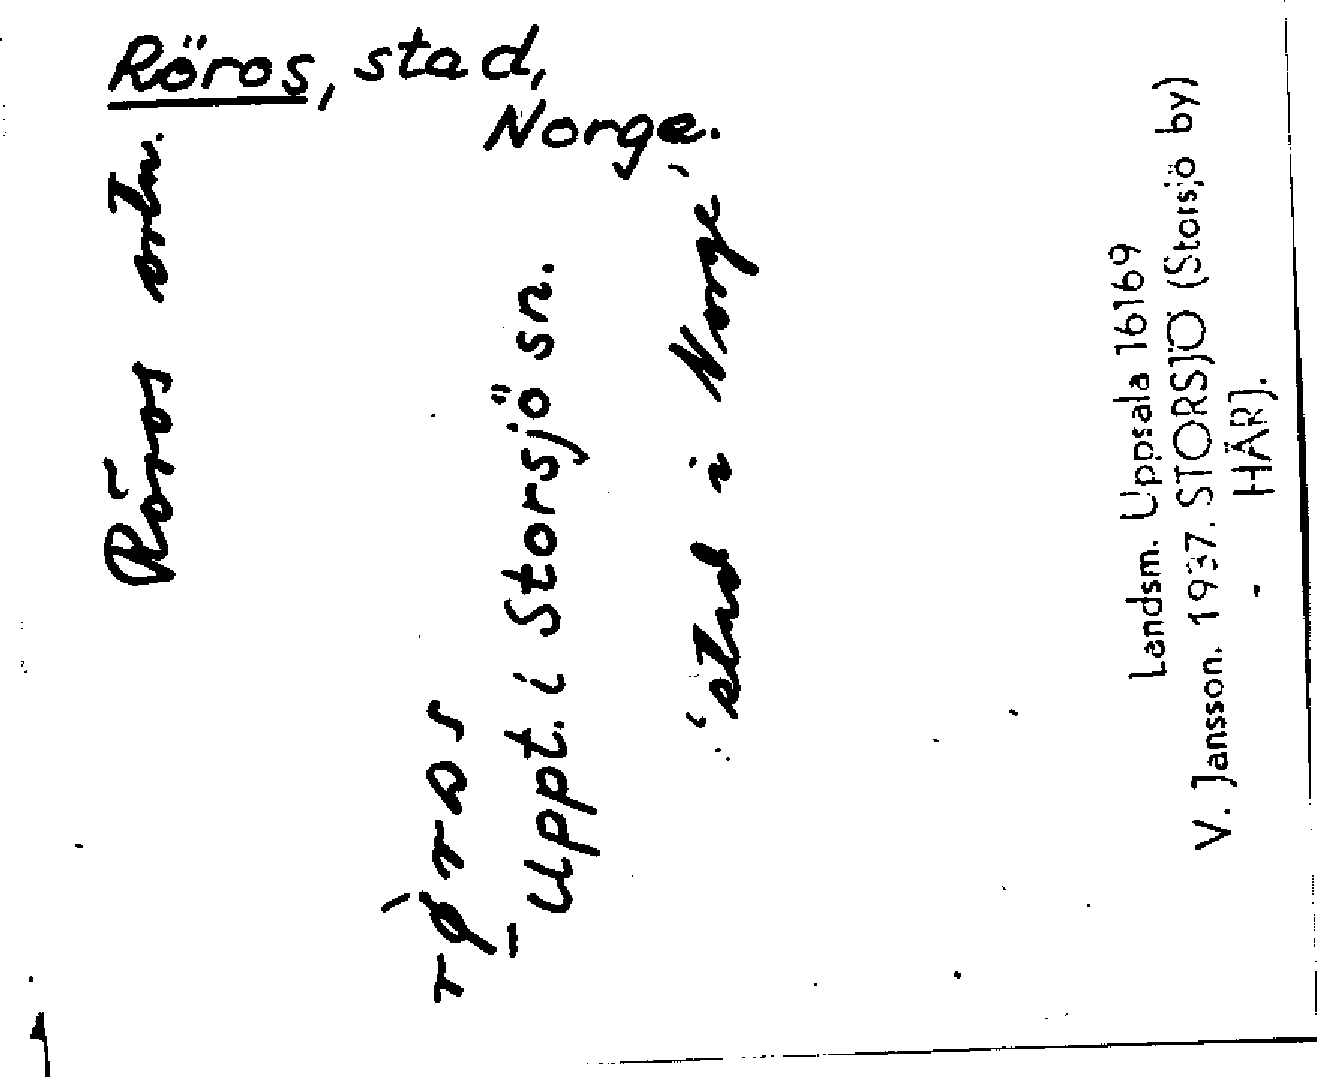 Röros, stad,
Norge.
Röros ortn.
rø̀ros
Uppt. i Storsjö sn.
'stad i Norge'
Landsm. Uppsala 16169
V. Jansson. 1937. STORSJÖ (Storsjö by)
- HÄRJ.